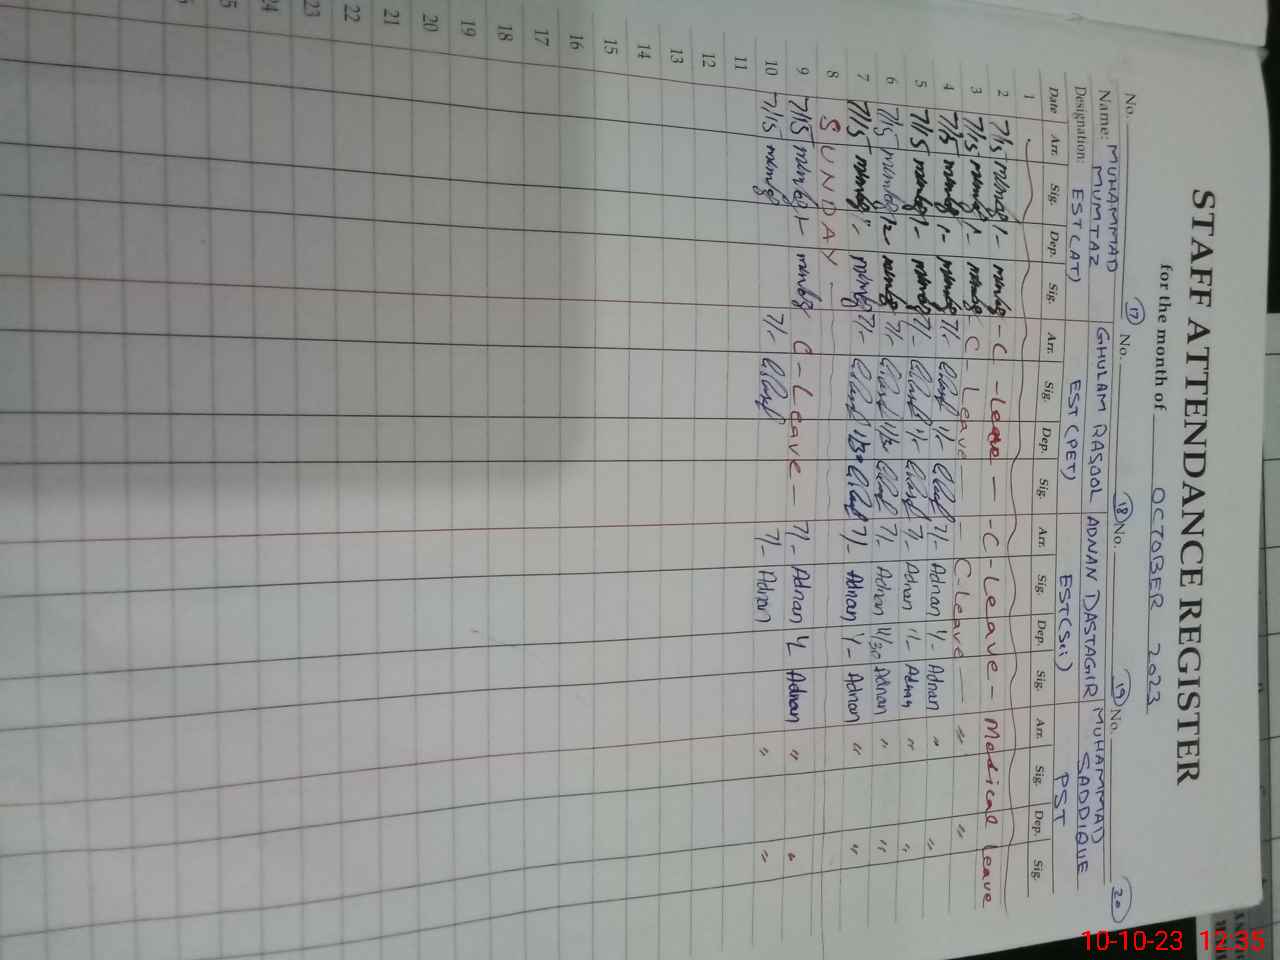 STAFF ATTENDANCE REGISTER
for the month of OCTOBER 2023
17 18 19 20
No. No. No. No.
Name: MUHAMMAD MUMTAZ GHULAM RASOOL ADNAN DASTAGIR MUHAMMAD SADDIQUE
Designation: EST(AT) EST(PET) EST(Sci) PST
Date Arr. Sig. Dep. Sig. Arr. Sig. Dep. Sig. Arr. Sig. Dep. Sig. Arr. Sig. Dep. Sig.
1
2 7/15 1- - C - Leave - - C - Leave - Medical Leave
3 7/15 1- - C - Leave - - C - Leave - " "
4 7/15 1- 7/- 1/- 7/- Adnan 1/- Adnan " "
5 7/15 1- 7/- 1/- 7/- Adnan 1/- Adnan " "
6 7/15 12 7/- 11/30 7/- Adnan 11/30 Adnan " "
7 7/15 1- 7/- 1/30 7/- Adnan 1/- Adnan " "
8 SUNDAY
9 7/15 1- C - Leave - 7/- Adnan 1/- Adnan " "
10 7/15 7/- 7/- Adnan " "
11
12
13
14
15
16
17
18
19
20
21
22
23
24
10-10-23 12:35